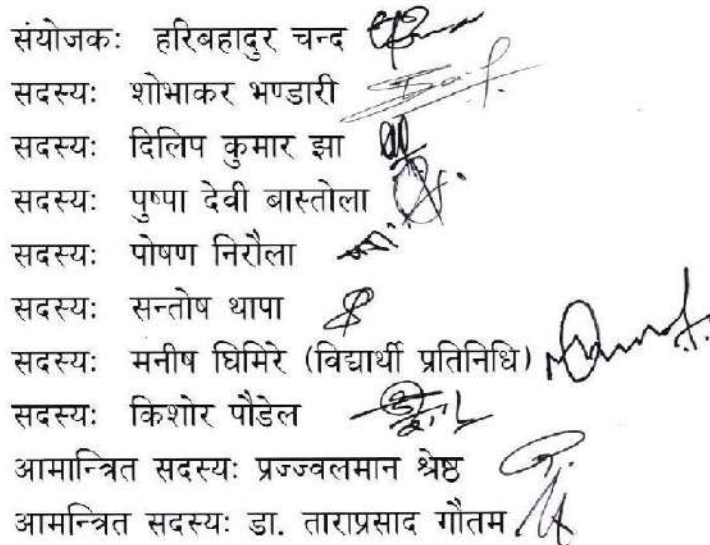 संयोजकः हरिबहादुर चन्द
सदस्यः शोभाकर भण्डारी
सदस्यः दिलिप कुमार झा
सदस्यः पुष्पा देवी बास्तोला
सदस्यः पोषण निरौला
सदस्यः सन्तोष थापा
सदस्यः मनीष घिमिरे (विद्यार्थी प्रतिनिधि)
सदस्यः किशोर पौडेल
आमान्त्रित सदस्यः प्रज्ज्वलमान श्रेष्ठ
आमन्त्रित सदस्यः डा. ताराप्रसाद गौतम